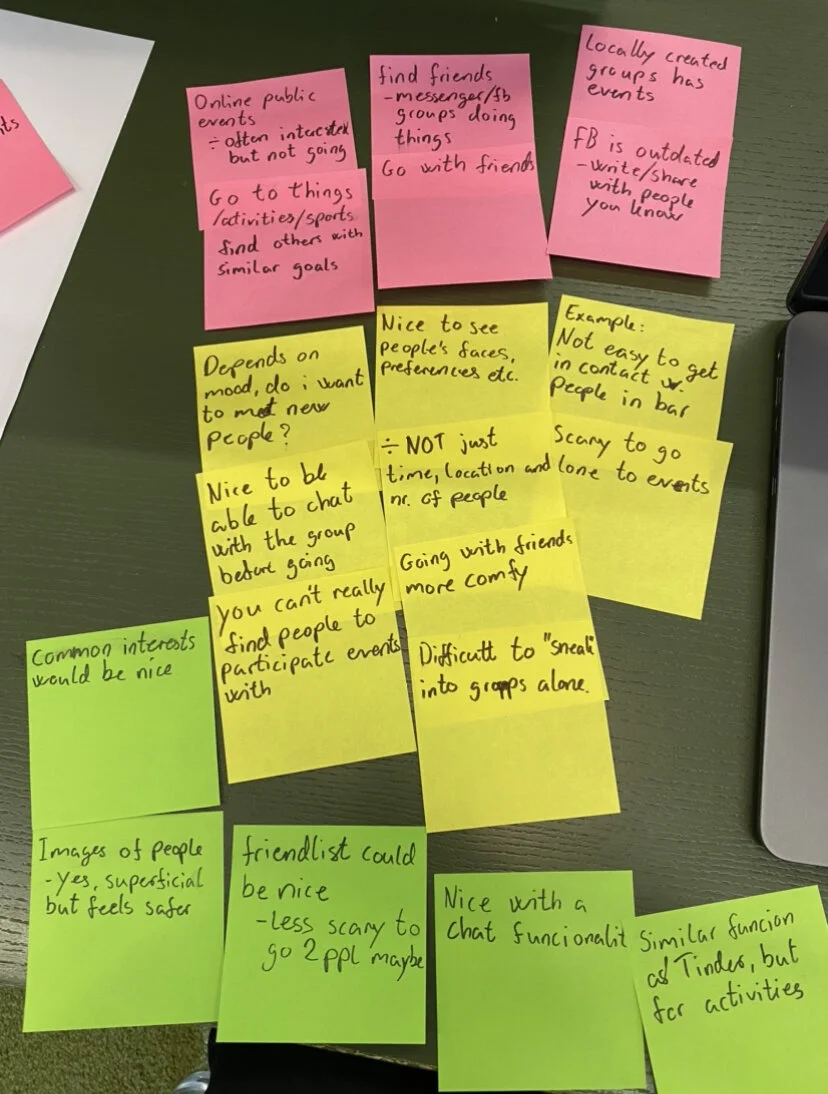 nts
Online public
events
÷ often interested
but not going
Go to things
/activities/sports
find others with
similar goals
find friends
- messenger/fb
groups doing
things
Go with friends
Locally created
groups has
events
FB is outdated
- write/share
with people
you know
Depends on
mood, do i want
to met new
people?
Nice to be
able to chat
with the group
before going
You can't really
find people to
participate events
with
Nice to see
people's faces,
preferences etc.
÷ NOT just
time, location and
nr. of people
Going with friends
more comfy
Difficult to "sneak"
into groups alone.
Example:
Not easy to get
in contact w.
people in bar
Scary to go
lone to events
Common interests
would be nice
Images of people
- yes, superficial
but feels safer
friendlist could
be nice
- Less scary to
go 2 ppl maybe
Nice with a
chat funcionalit
Similar funcion
as Tinder, but
for activities